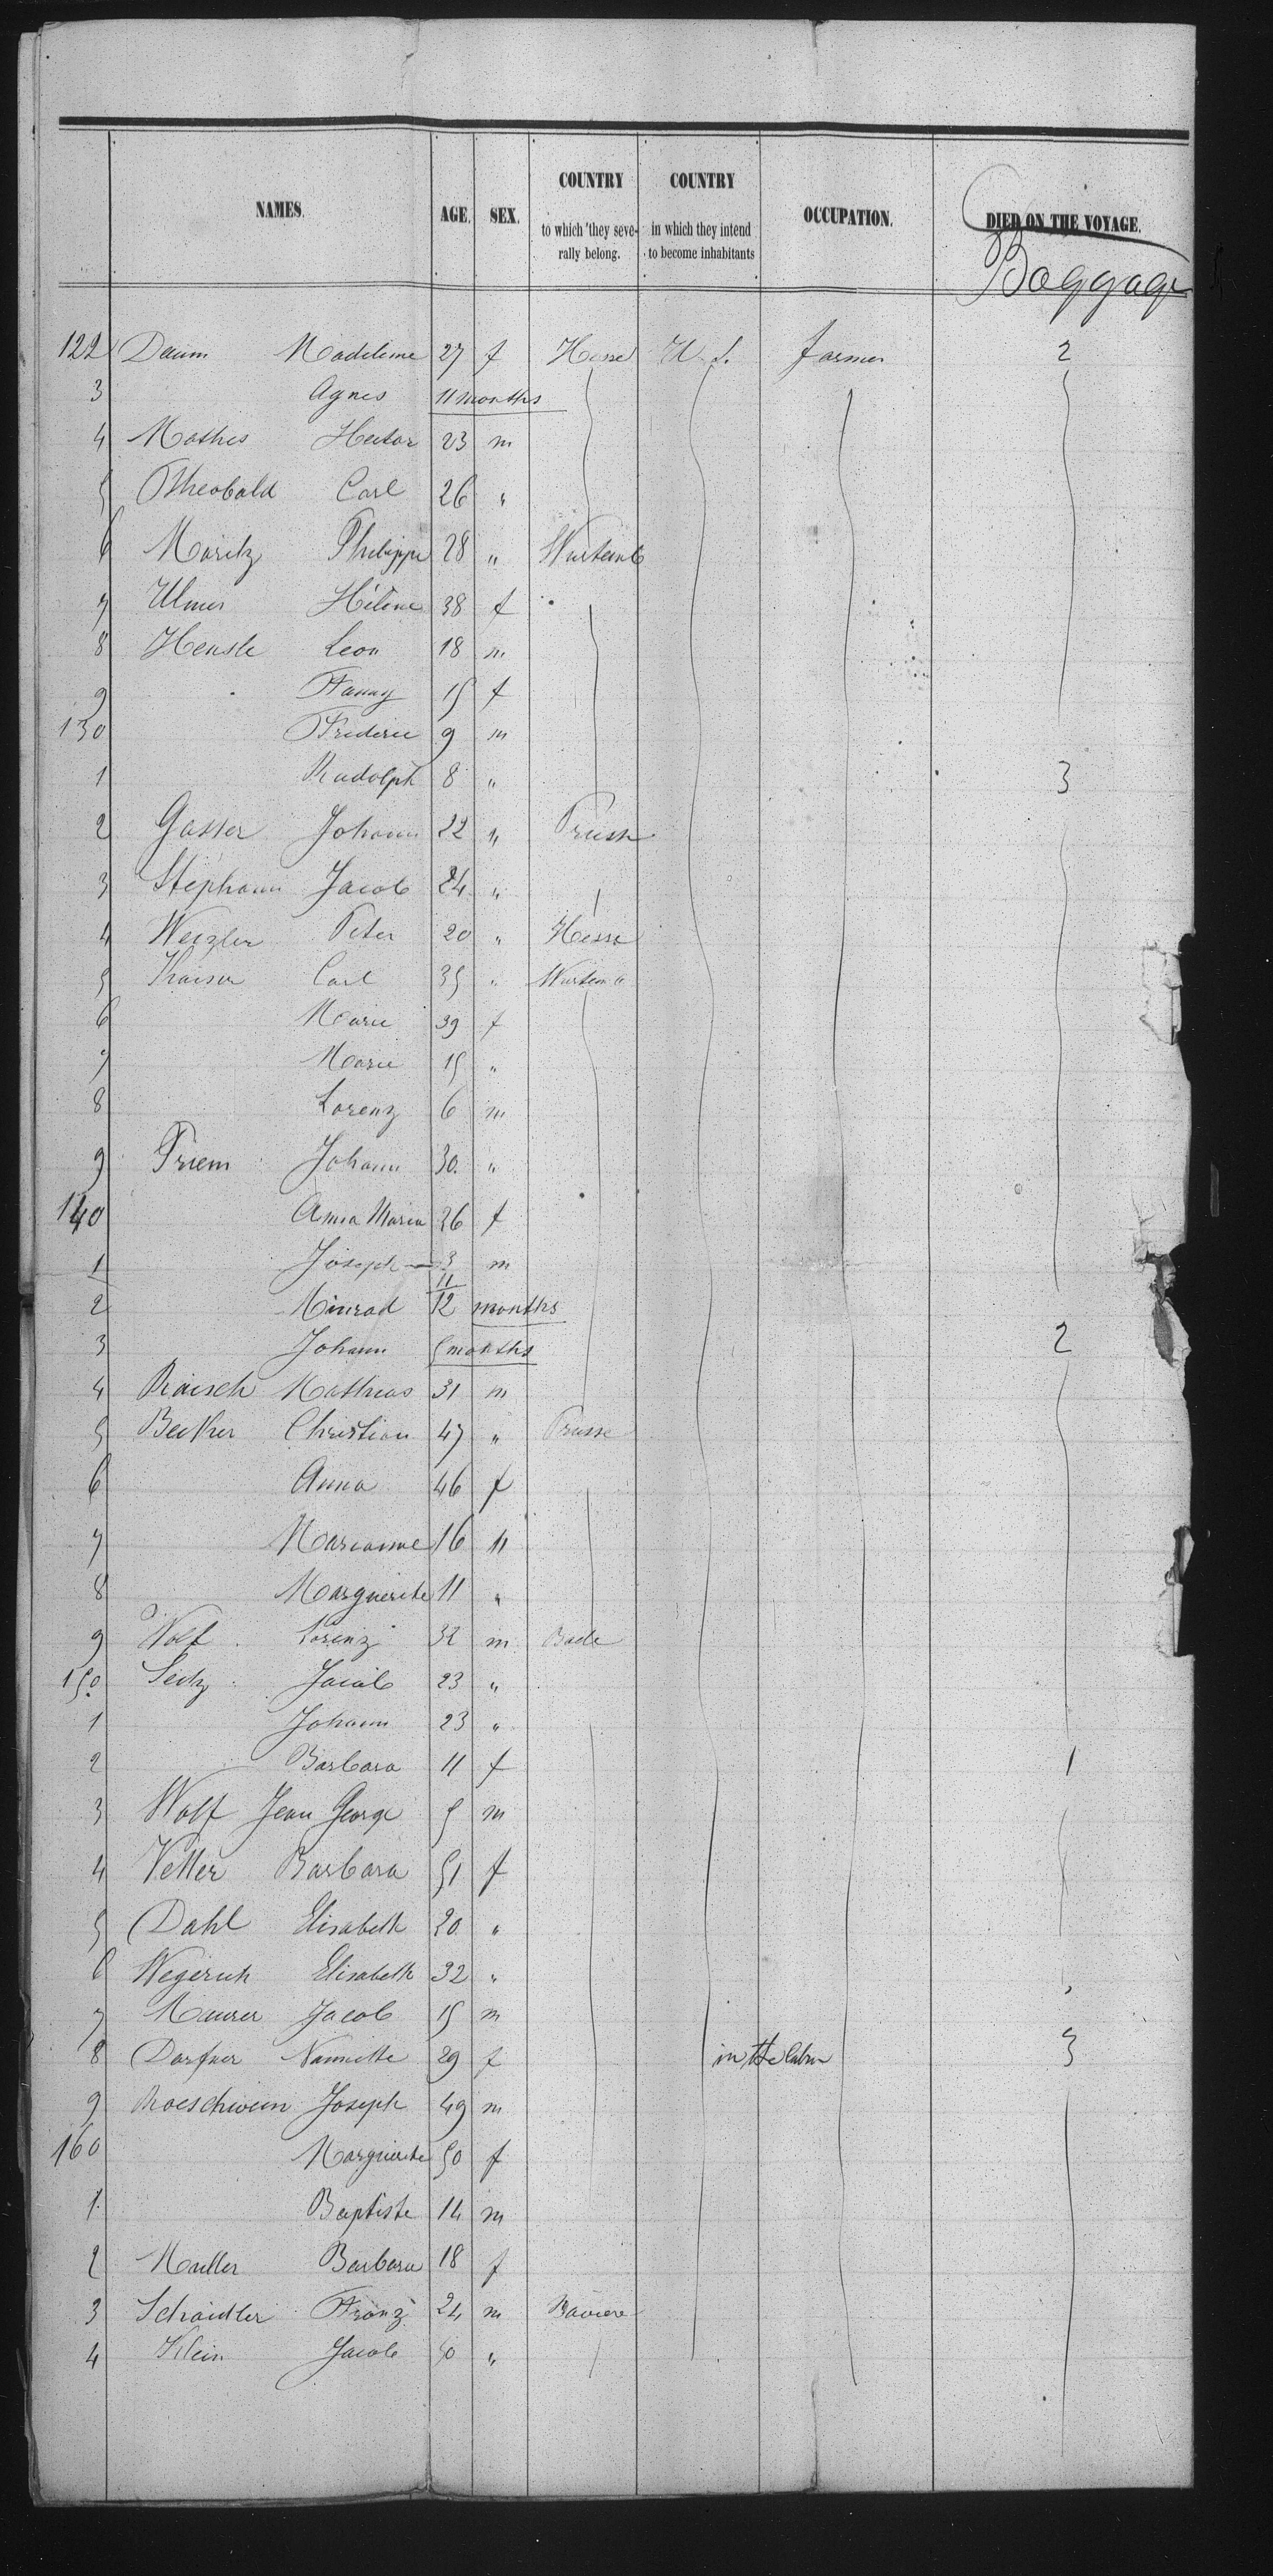 NAMES. AGE. SEX. COUNTRY to which they severally belong. COUNTRY in which they intend to become inhabitants OCCUPATION. DIED ON THE VOYAGE.
Baggage
122 Daum Madeleine 27 f Hesse U. S. farmer 2
3 Agnes 11 months
4 Mathes Hector 23 m
5 Theobald Carl 26 "
6 Moritz Philippe 28 " Wurtemb
7 Ulmer Hélène 38 f
8 Hensle Leon 18 m
9 Fanny 15 f
130 Frederic 9 m
1 Rudolph 8 " 3
2 Gasser Johann 22 " Prusse
3 Stephann Jacob 24 "
4 Weizler Peter 20 " Hesse
5 Kaiser Carl 35 " Wurtemb
6 Marie 39 f
7 Marie 15 "
8 Lorenz 6 m
9 Priem Johann 30 "
140 Anna Maria 26 f
1 Joseph 3 m
2 Minrad 11/12 months
3 Johann 5 months 2
4 Raisch Mathias 31 m
5 Becker Christian 47 " Prusse
6 Anna 46 f
7 Marianne 16 "
8 Marguerite 11 "
9 Wolf Lorenz 32 m Bade
150 Seitz Jacob 23 "
1 Johann 23 "
2 Barbara 11 f 1
3 Wolf Jean George 5 m
4 Vetter Barbara 51 f
5 Dahl Elisabeth 20 "
6 Wegerich Elisabeth 32 "
7 Maurer Jacob 15 m
8 Dorfner Nannette 29 f in the Cabin 3
9 Roeschwein Joseph 49 m
160 Marguerite 50 f
1 Baptiste 14 m
2 Muller Barbara 18 f
3 Schaidler Franz 24 m Baviere
4 Klein Jacob 50 "